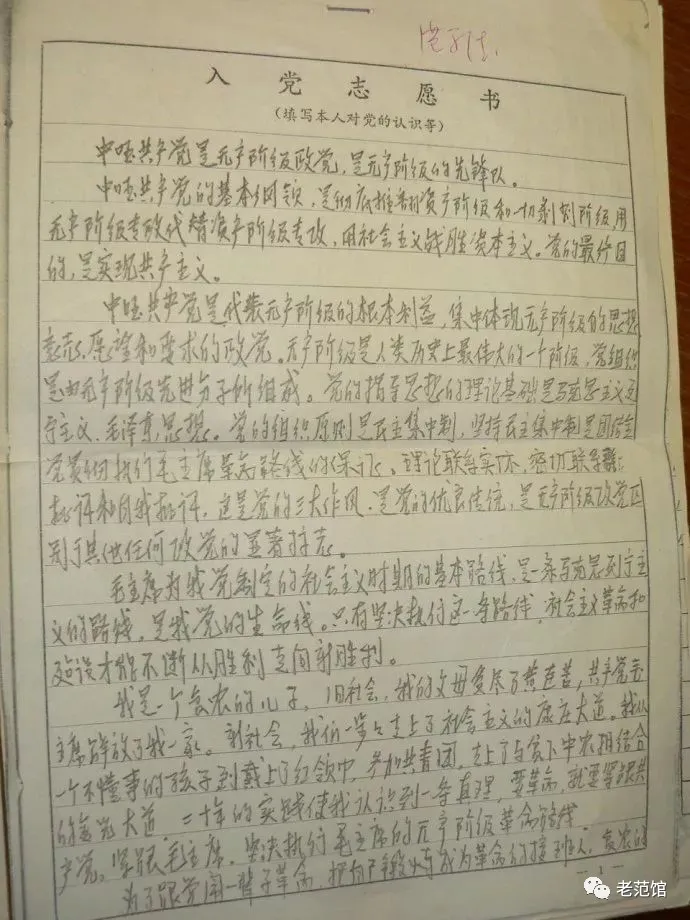 入党志愿书
(填写本人对党的认识等)
中国共产党是无产阶级政党,是无产阶级的先锋队。
中国共产党的基本纲领,是彻底推翻资产阶级和一切剥削阶级,用
无产阶级专政代替资产阶级专政,用社会主义战胜资本主义。党的最终目
的,是实现共产主义。
中国共产党是代表无产阶级的根本利益,集中体现无产阶级的思想
意志、愿望和要求的政党。无产阶级是人类历史上最伟大的一个阶级,党组织
是由无产阶级先进分子所组成。党的指导思想的理论基础是马克思主义列
宁主义、毛泽东思想。党的组织原则是民主集中制,坚持民主集中制是团结全
党贯彻执行毛主席革命路线的保证。理论联系实际,密切联系群众
批评和自我批评,这是党的三大作风,是党的优良传统,是无产阶级政党区
别于其他任何政党的显著标志。
毛主席为我党制定的社会主义时期的基本路线,是一条马克思列宁主
义的路线,是我党的生命线。只有坚决执行这一条路线,社会主义革命和
建设才能不断从胜利走向新胜利。
我是一个贫农的儿子,旧社会,我的父母受尽了苦,共产党毛
主席解放了我一家。新社会,我们一步步走上了社会主义的康庄大道。我从
一个不懂事的孩子到戴上了红领巾,参加共青团,走上了与贫下中农相结合
的金光大道。二十年的实践使我认识到一条真理,要革命,就要紧跟共
产党,紧跟毛主席,坚决执行毛主席的无产阶级革命路线
为了跟党闹一辈子革命,把自己锻炼成为革命的接班人,贫农的
1
老范馆